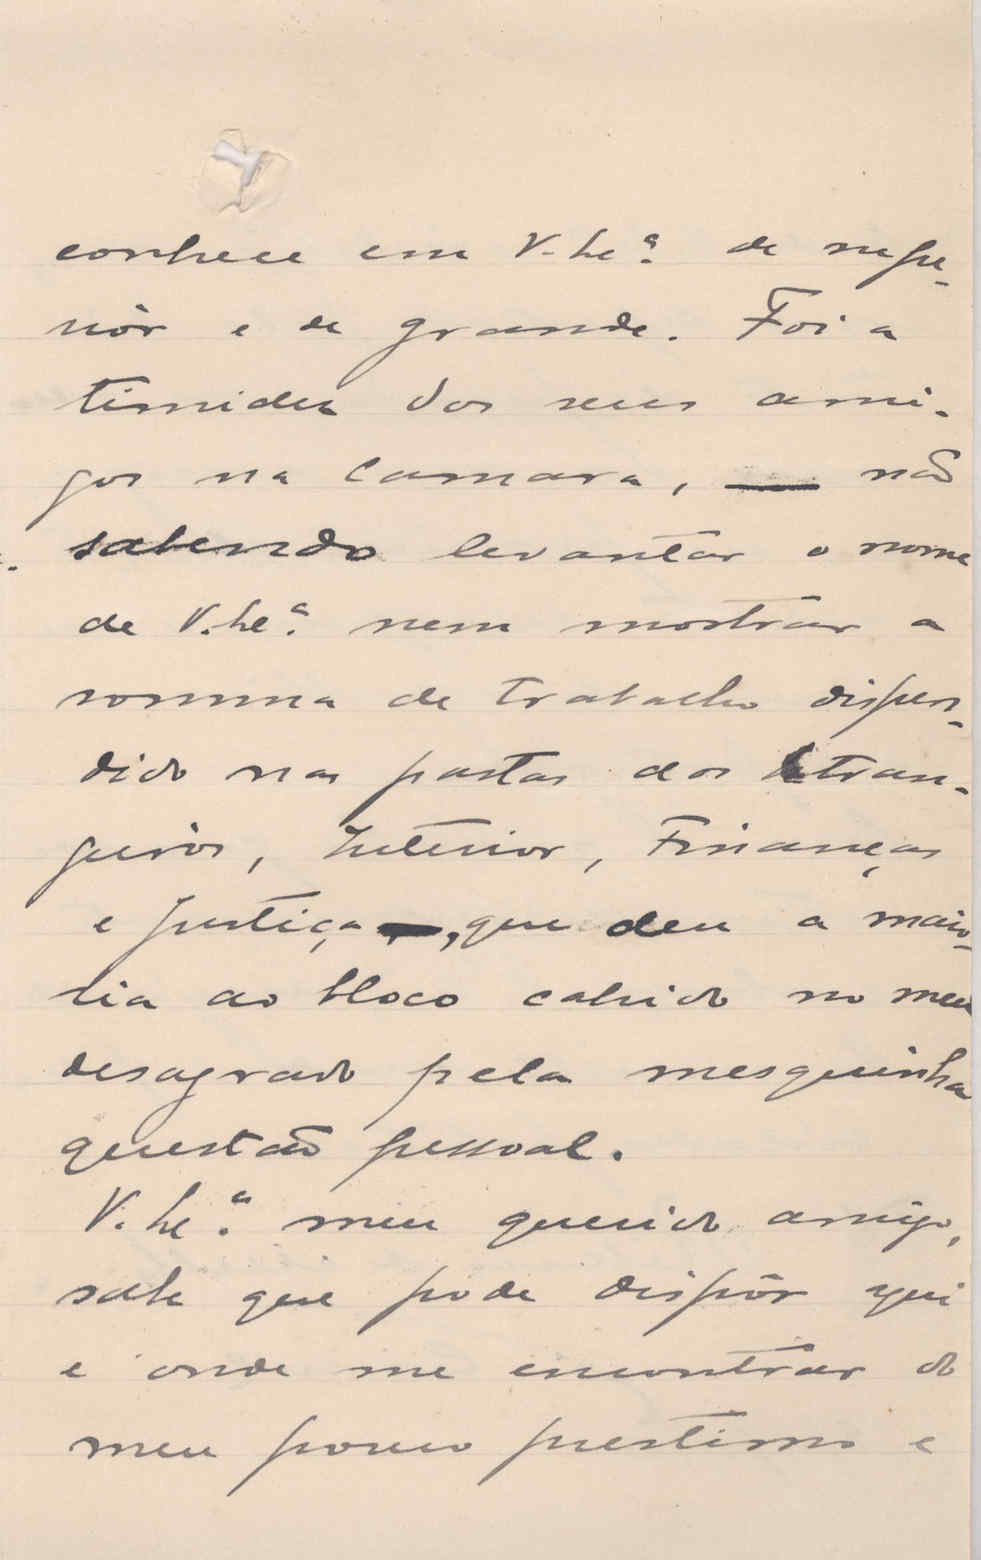 conhece em V. Ex.ª de supe-
riôr e de grande. Foi a
timidez dos seus ami-
gos na Camara, não
sabendo levantar o nome
de V. Ex.ª nem mostrar a
somma de trabalho dispen-
dido nas pastas dos Estran-
geiros, Interior, Finanças
e Justiça, que deu a maio-
ria ao bloco cahido no meu
desagrado pela mesquinha
questão pessoal.
V. Ex.ª meu querido amigo,
sabe que pode dispôr aqui
e onde me encontrar do
meu pouco prestimo e